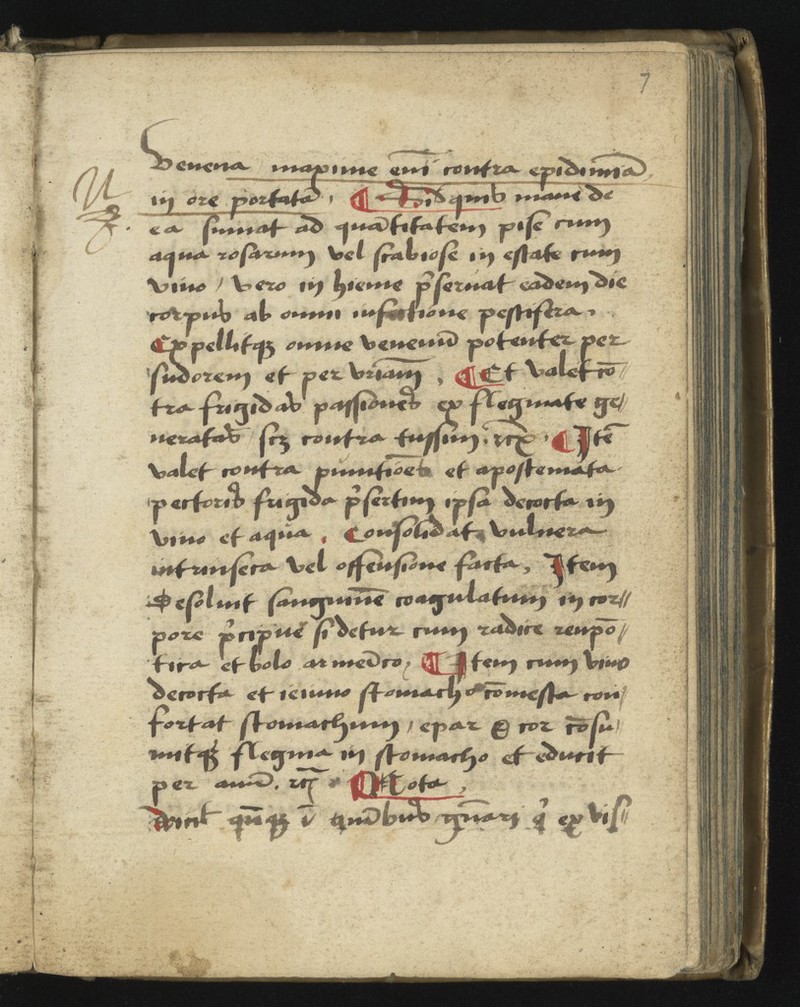 7
Venena maxime em̄ contra epidimiā
in ore portata. ¶ Si quis mane de
ea sumat ad quātitatem pise cum
aqua rosarum vel scabiose in estate cum
vino, vero in hieme p̄seruat eadem die
corpus ab omni infectione pestifera.
Expellitqꝫ omne venenū potenter per
sudorem et per vrinam. ¶ Et valet cō⸗
tra frigidas passiones ex flegmate ge⸗
neratas scꝫ contra tussim. rc̄. ¶ Itē
valet contra et apostemata
pectoris frigida p̄sertim ipsa decocta in
vino et aqua. Consolidat vulnera
intrinseca vel offensione facta. Item
Resoluit sanguinē coagulatum in cor⸗
pore p̄cipue si detur cum radice reupō⸗
tica et bolo armēco. ¶ Item cum vino
decocta et ieiuno stomacho cōmesta con⸗
fortat stomachum, epar & cor cōsu⸗
mitqꝫ flegma in stomacho et educit
per anū. rc̄. ¶ Nota.
ex vis⸗